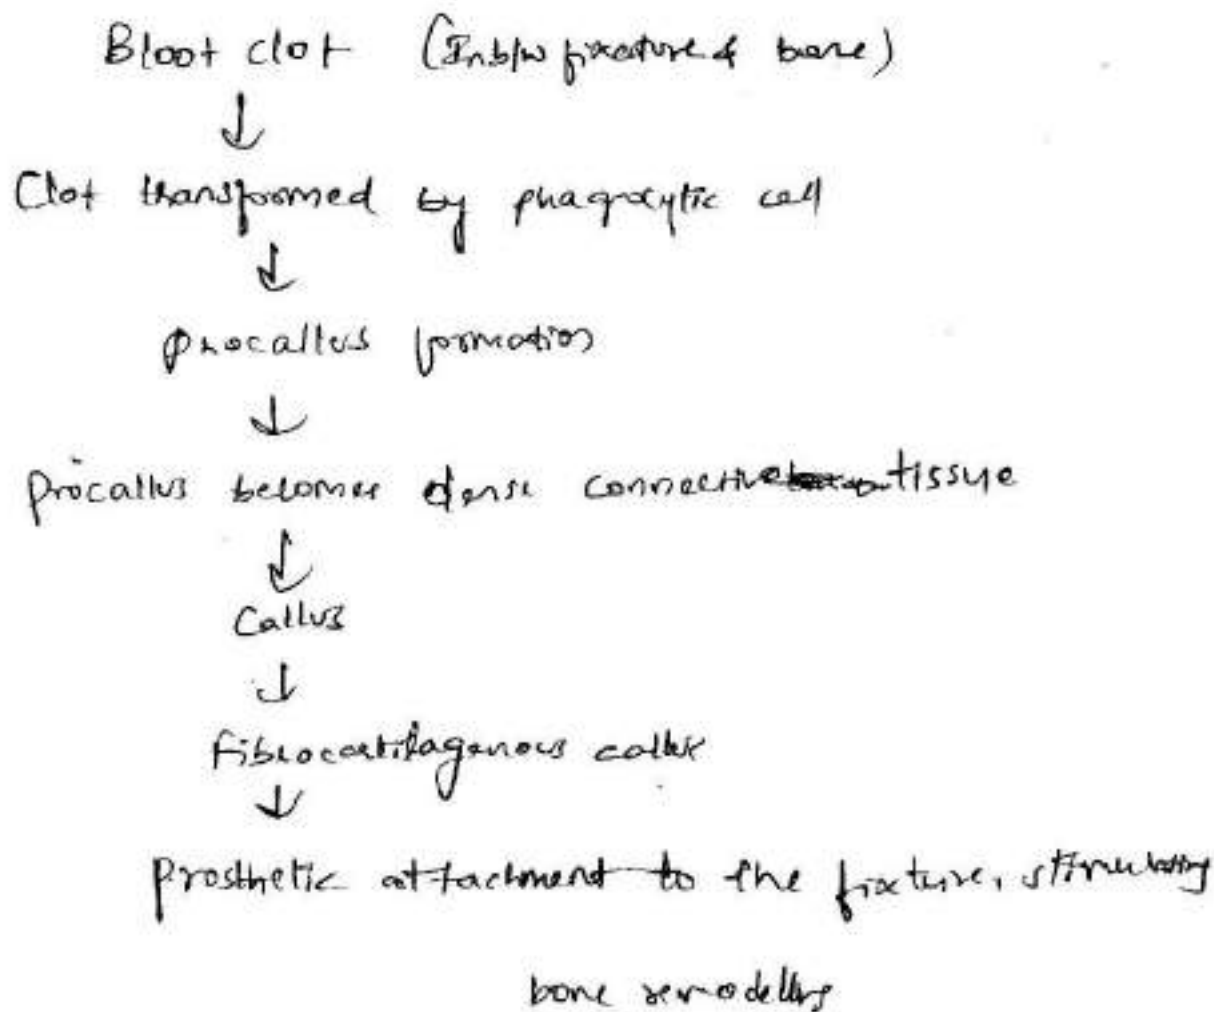 Bloot clot (Inb/w fixature & bone)
↓
Clot transformed by phagocytic cell
↓
procallus formation
↓
procallus becomes dense connective tissue
↓
Callus
↓
Fibrocartilagenous callus
↓
Prosthetic attachment to the fixture, stimulating
bone remodelling